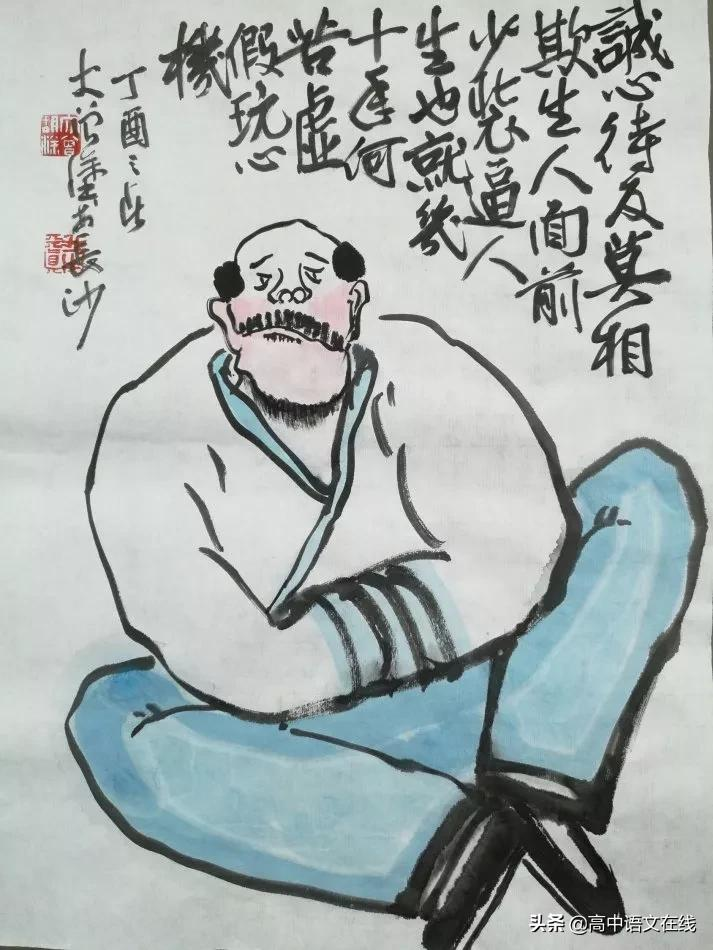 誠心待友莫相
欺生人面前
少裝逼人
生也就幾
十年何
苦虛
假玩心
機
丁酉之
大曾塗於長沙
头条 @高中语文在线